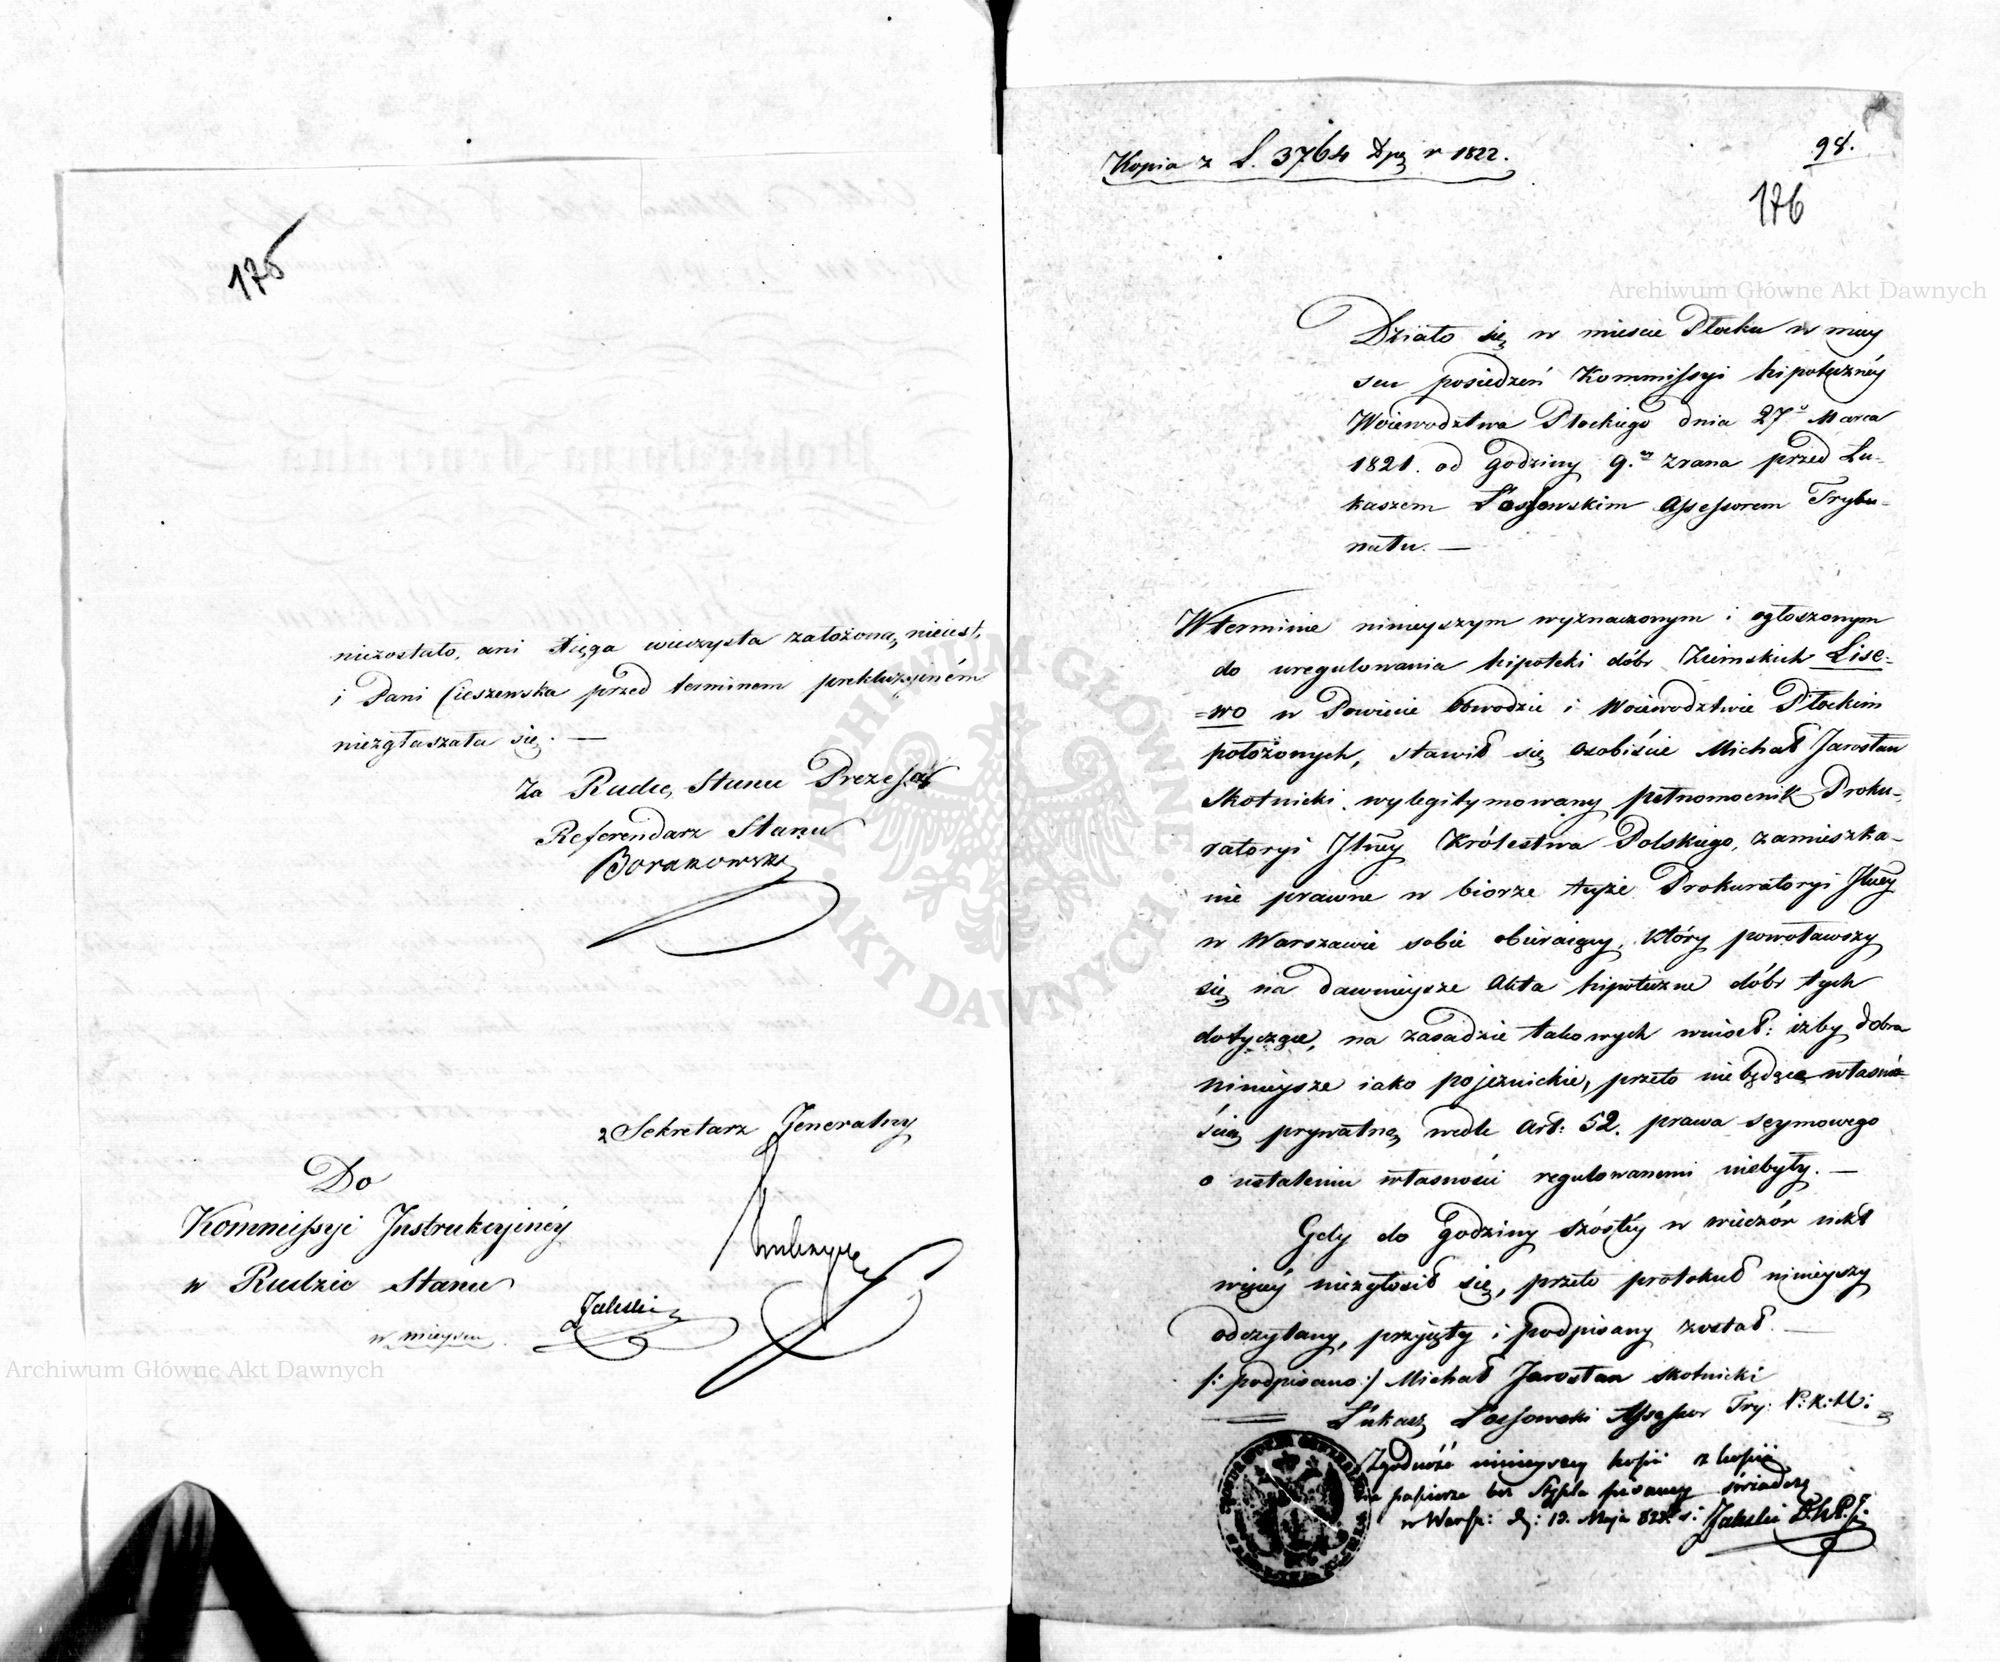 175
niezostało, ani xięga wieczysta założoną nieiest,
i Pani Cieszewska przed terminem prekluzyjném
niezgłaszała się. —
Za Radcę Stanu Prezesa
Referendarz Stanu
Sekretarz Jeneralny
Do
Kommissyi Instrukcyinéy
w Radzie Stanu
w mieyscu.
Jaleski
Kopia z L. 3764 r 1822.
98.
176
Działo się w mieście Płocku w miey
scu posiedzeń Kommissyi hipotecznéy
Woiewodztwa Płockiego dnia 27º Marca
1821. od godziny 9. zrana przed Łu-
kaszem Assessorem Trybu-
nału. —
W terminie ninieyszym wyznaczonym i ogłoszonym
do uregulowania hipoteki dóbr Ziemskich Lise=
=wo w Powiecie Obwodzie i Woiewodztwie Płockim
położonych, stawił się osobiście Michał Jarosław
Skotnicki wylegitymowany pełnomocnik Proku-
ratoryi Jłnéy Królestwa Polskiego, zamieszka-
nie prawne w biorze teyże Prokuratoryi Jlnéy
w Warszawie sobie obieraiący, który powoławszy
się na dawnieysze Akta hipoteczne dóbr tych
dotyczące, na zasadzie takowych wniosł: iżby dobra
ninieysze iako pojezuickie, przeto nie będące własno-
ścią prywatną wedle Art: 52. prawa seymowego
o ustaleniu własności regulowanemi niebyły. —
Gdy do godziny szóstéy w wieczór nikt
więcéy niezgłosił się, przeto protokuł ninieyszy
odczytany, przyięty i podpisany został. —
/: podpisano :/ Michał Jarosław Skotnicki
Łukasz Łossowski Assessor Try: P: K: M:
Zgodność ninieyszey kopii z kopią
na papierze bez Stępla pisaney świadczę
w Warsz: d: 19. Maja 822. r: Jaleski
Archiwum Główne Akt Dawnych
Archiwum Główne Akt Dawnych
ARCHIWUM GŁÓWNE · AKT DAWNYCH ·